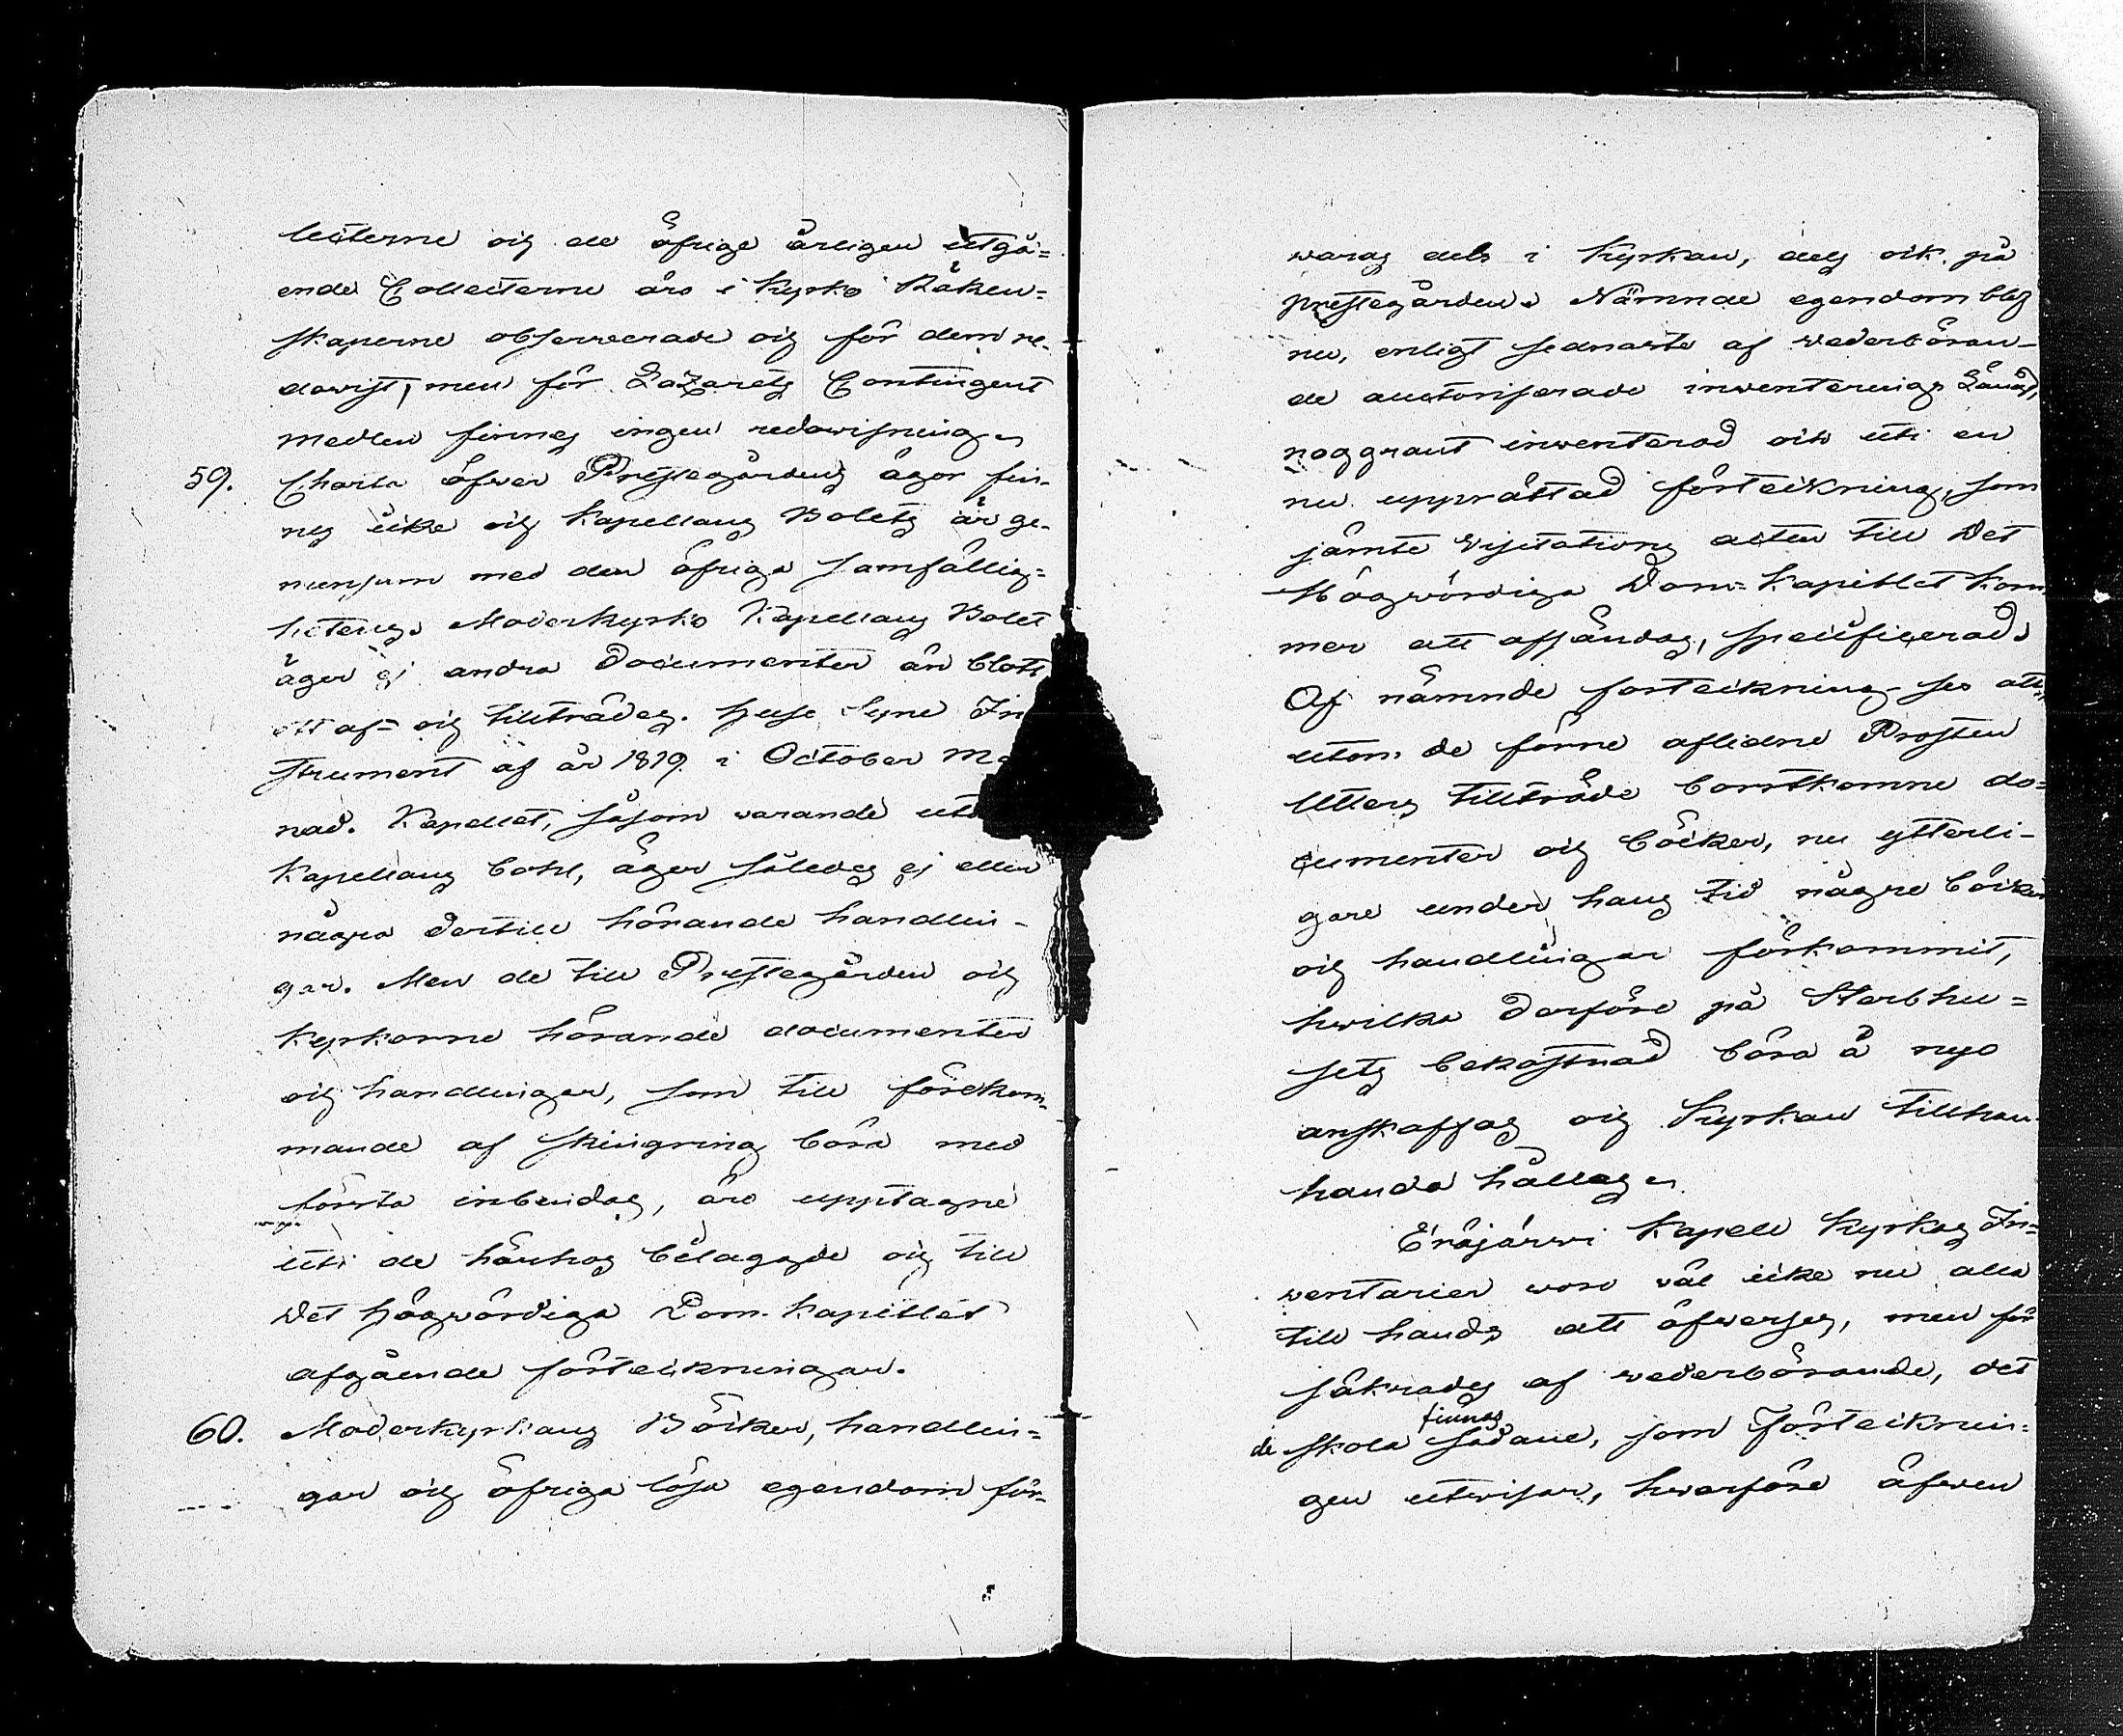 lecterne och de öfrige årligen utgå=
ende Collecterne äro i Kyrko Räken=
skaperne observerade och för dem re-
dovist, men för Lazarets Contingent
medlen finnes ingen redovisning.
59. Charta öfver Prestegårdens ägor fin-
nes icke och Kapellans Bolets är ge-
mensam med den öfriga samfällig=
hetens. Moderkyrko Kapellans Bolet
äger ej andra Documenter än blott
ett af- och tillträdes. Huse Syne In
strument af år 1819 i October Må
nad. Kapellet, såsom varande utan
Kapellans bohl, äger således ej eller
några dertill hörande handlin-
gar. Men de till Prestegården och
Kyrkorne hörande documenter
och handlingar, som till förekom-
mande af skingring böra med
första inbindas, äro upptagne
uti de härhos bilagade och till
Det Högvördiga Dom-Kapitlet
afgående förteckningar.
60. Moderkyrkans Böcker, handlin=
gar och öfriga lösa egendom för-
varas dels i Kyrkan, dels ock på
prestegården. Nämnde egendom blef
nu, enligt sednaste af vederböran-
de auctoriserade inventerings Längd,
noggrant inventerad och uti en
nu upprättad förteckning, som
jämte Visitations acten till Det
Högvördiga Dom-Kapitlet kom
mer att afsändas, specificerad.
Af nämnde forteckning ses att,
utom de förre aflidne Prosten
Utters tillträde bortkomne do=
cumenter och böcker, nu ytterli-
gare under hans tid några böcker
och handlingar förkommit,
hvilka derföre på Sterbhu=
sets bekostnad böra å nyo
anskaffas och Kyrkan tillhan-
handa hållas.
Eräjärvi Kapell Kyrkas In=
ventarier voro väl icke nu alla
till hands att öfverses, men för
säkrades af vederbörande, det
de skola finnas sådane, som Förteiknin=
gen utvisar, hvarföre äfven